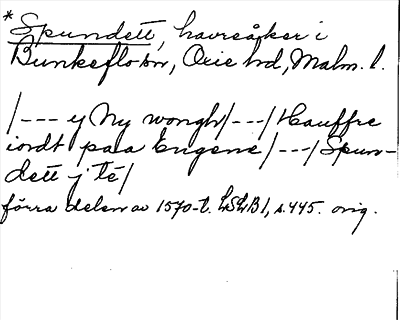 * Spundett, havreåker i
Bunkeflo sn, Oxie hd, Malm. l.
/--- y Ny wongh/---/ Hauffre
iordt paa Engene /---/ Spun-
dett j té/
förra delen av 1570-t. LSLB 1, s. 445. orig.